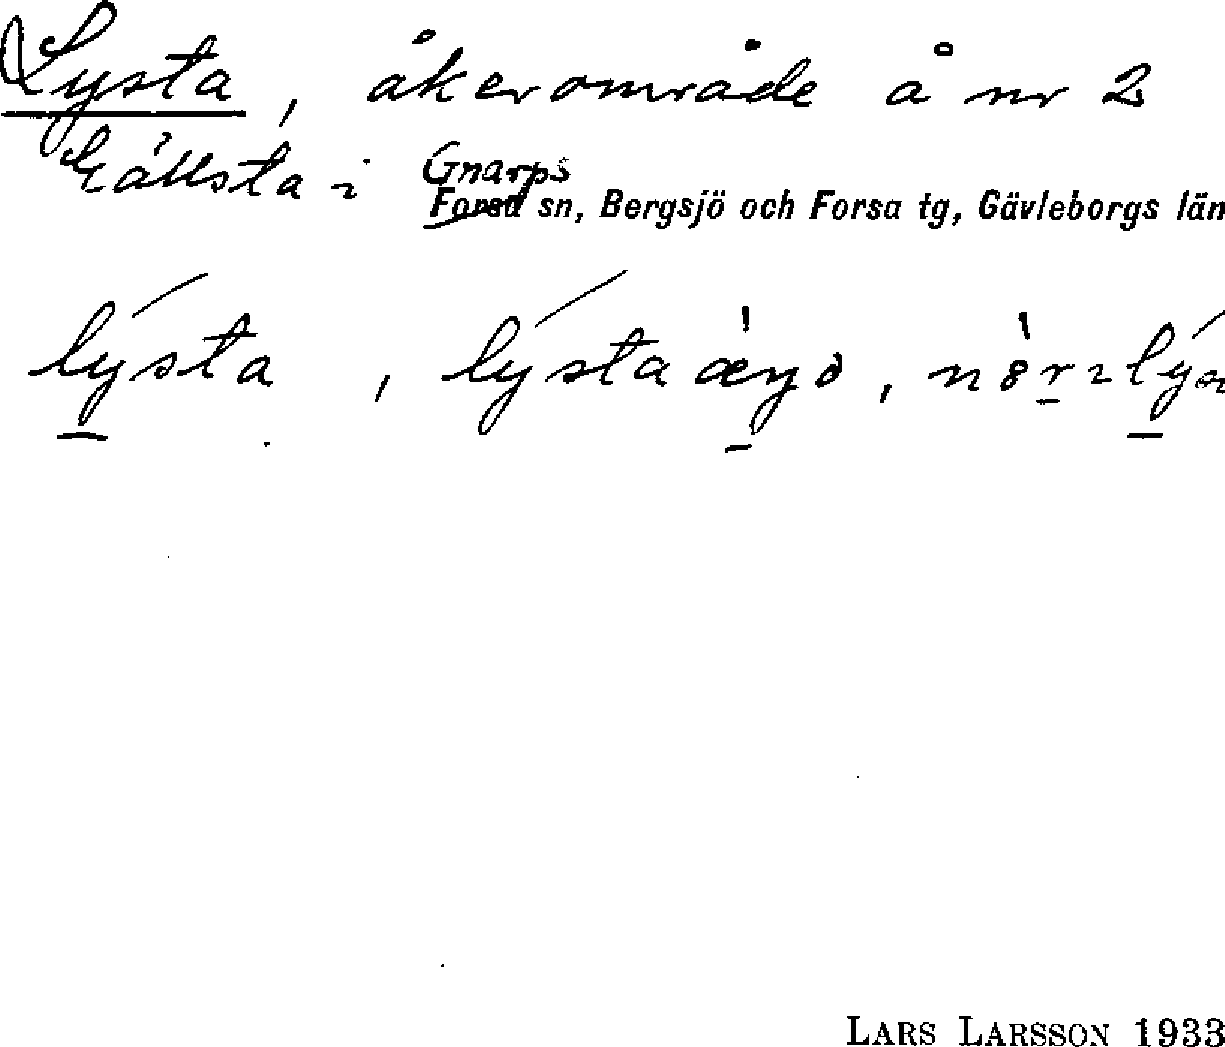 Lysta, åkerområde å nr 2
Gällsta i Gnarps
Forsa sn, Bergsjö och Forsa tg, Gävleborgs län
lýsta, lýsta
LARS LARSSON 1933